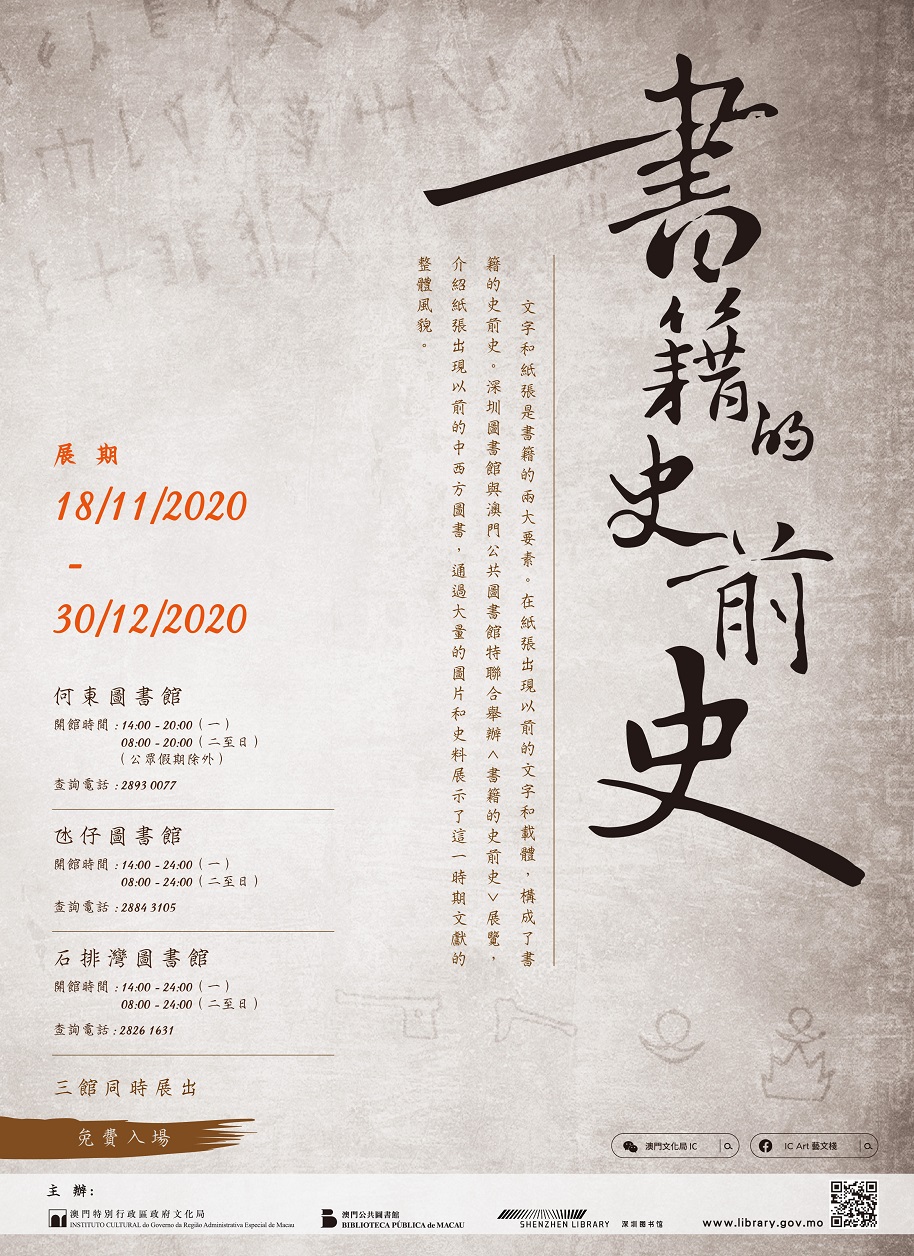 書籍的史前史
文字和紙張是書籍的兩大要素。在紙張出現以前的文字和載體，構成了書
籍的史前史。深圳圖書館與澳門公共圖書館特聯合舉辦＜書籍的史前史＞展覽，
介紹紙張出現以前的中西方圖書，通過大量的圖片和史料展示了這一時期文獻的
整體風貌。
展 期
18/11/2020
-
30/12/2020
何東圖書館
開館時間：14:00 - 20:00（一）
08:00 - 20:00（二至日）
（公眾假期除外）
查詢電話：2893 0077
氹仔圖書館
開館時間：14:00 - 24:00（一）
08:00 - 24:00（二至日）
查詢電話：2884 3105
石排灣圖書館
開館時間：14:00 - 24:00（一）
08:00 - 24:00（二至日）
查詢電話：2826 1631
三館同時展出
免費入場
澳門文化局 IC
IC Art 藝文棧
主 辦：
澳門特別行政區政府文化局
INSTITUTO CULTURAL do Governo da Região Administrativa Especial de Macau
澳門公共圖書館
BIBLIOTECA PÚBLICA de MACAU
SHENZHEN LIBRARY 深圳图书馆
www.library.gov.mo